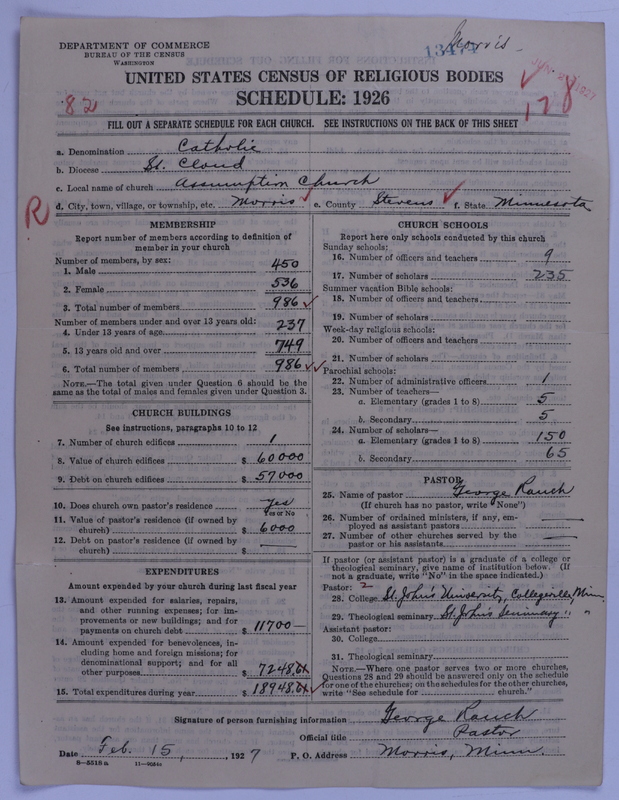 DEPARTMENT OF COMMERCE
BUREAU OF THE CENSUS
WASHINGTON
Morris
UNITED STATES CENSUS OF RELIGIOUS BODIES
SCHEDULE: 1926
82
178
FILL OUT A SEPARATE SCHEDULE FOR EACH CHURCH. SEE INSTRUCTIONS ON THE BACK OF THIS SHEET
a. Denomination Catholic
b. Diocese St. Cloud
c. Local name of church Assumption Church
R
d. City, town, village, or township, etc. Morris e. County Stevens f. State Minnesota
MEMBERSHIP
Report number of members according to definition of
member in your church
Number of members, by sex:
1. Male 450
2. Female 536
3. Total number of members 986
Number of members under and over 13 years old:
4. Under 13 years of age 237
5. 13 years old and over 749
6. Total number of members 986
NOTE.—The total given under Question 6 should be the
same as the total of males and females given under Question 3.
CHURCH BUILDINGS
See instructions, paragraphs 10 to 12
7. Number of church edifices 1
8. Value of church edifices $ 60000
9. Debt on church edifices $ 57000
10. Does church own pastor's residence Yes
Yes or No
11. Value of pastor's residence (if owned by
church) $ 6000
12. Debt on pastor's residence (if owned by
church) $
EXPENDITURES
Amount expended by your church during last fiscal year
13. Amount expended for salaries, repairs,
and other running expenses; for im-
provements or new buildings; and for
payments on church debt $ 11700 —
14. Amount expended for benevolences, in-
cluding home and foreign missions; for
denominational support; and for all
other purposes $ 7248.61
15. Total expenditures during year $ 18948.61
CHURCH SCHOOLS
Report here only schools conducted by this church
Sunday schools:
16. Number of officers and teachers 9
17. Number of scholars 235
Summer vacation Bible schools:
18. Number of officers and teachers
19. Number of scholars
Week-day religious schools:
20. Number of officers and teachers
21. Number of scholars
Parochial schools:
22. Number of administrative officers 1
23. Number of teachers—
a. Elementary (grades 1 to 8) 5
b. Secondary 5
24. Number of scholars—
a. Elementary (grades 1 to 8) 150
b. Secondary 65
PASTOR
25. Name of pastor George Rauch
(If church has no pastor, write "None")
26. Number of ordained ministers, if any, em-
ployed as assistant pastors
27. Number of other churches served by the
pastor or his assistants
If pastor (or assistant pastor) is a graduate of a college or
theological seminary, give name of institution below. (If
not a graduate, write "No" in the space indicated.)
Pastor: 2
28. College St. John's University, Collegeville, Minn
29. Theological seminary St. John's Seminary " "
Assistant pastor:
30. College
31. Theological seminary
NOTE.—Where one pastor serves two or more churches,
Questions 28 and 29 should be answered only on the schedule
for one of the churches; on the schedules for the other churches,
write "See schedule for church."
Signature of person furnishing information George Rauch
Official title Pastor
Date Feb. 15, 1927 P. O. Address Morris, Minn.
8—5518a 11—9054c